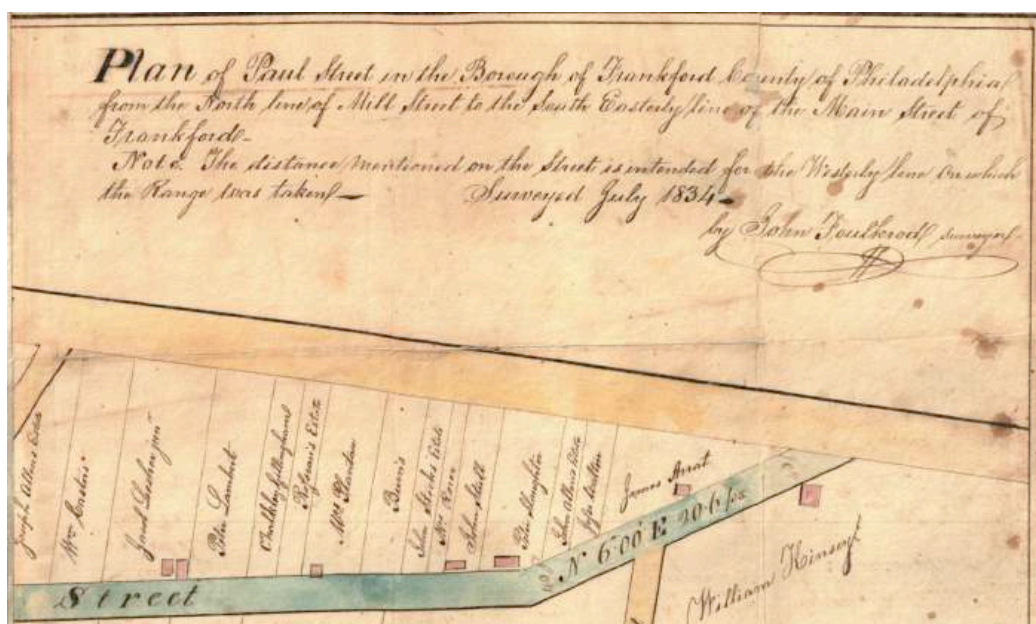 Plan of Paul Street in the Borough of Frankford County of Philadelphia
from the North line of Mill Street to the South Easterly line of the Main Street of
Frankford
Note. The distance mentioned on the Street is intended for the Westerly line on which
the Range was taken — Surveyed July 1834
by John Foulkrod surveyor
Joseph Allens Estate
Wm
Jacob
Peter Lambert
Estate
Mrs
Burns
John Estate
John
Peter Slaughter
John Allens Estate
James Arrat
N 6°00 E 20.6
Street
William Kinsey